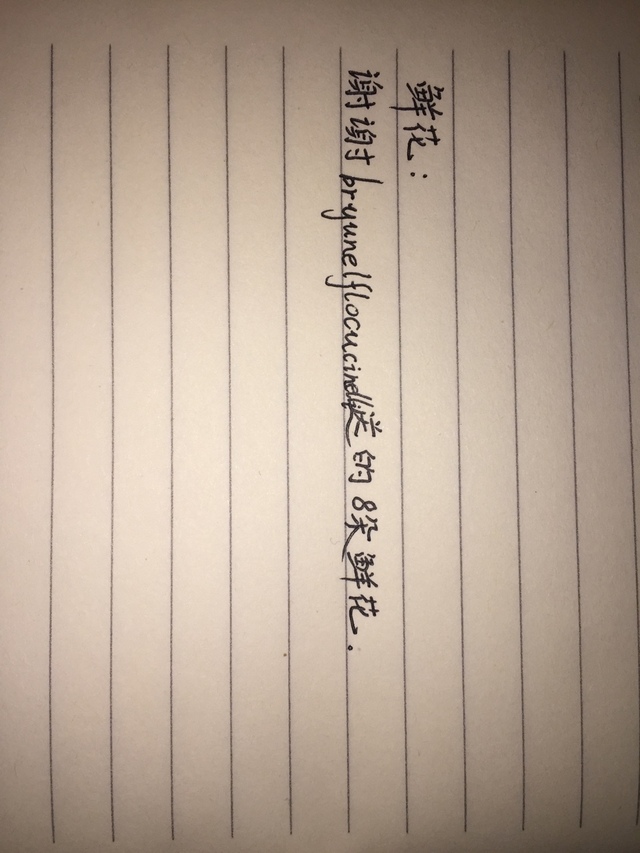 鲜花：
谢谢bryunelflocucindll送的8朵鲜花.